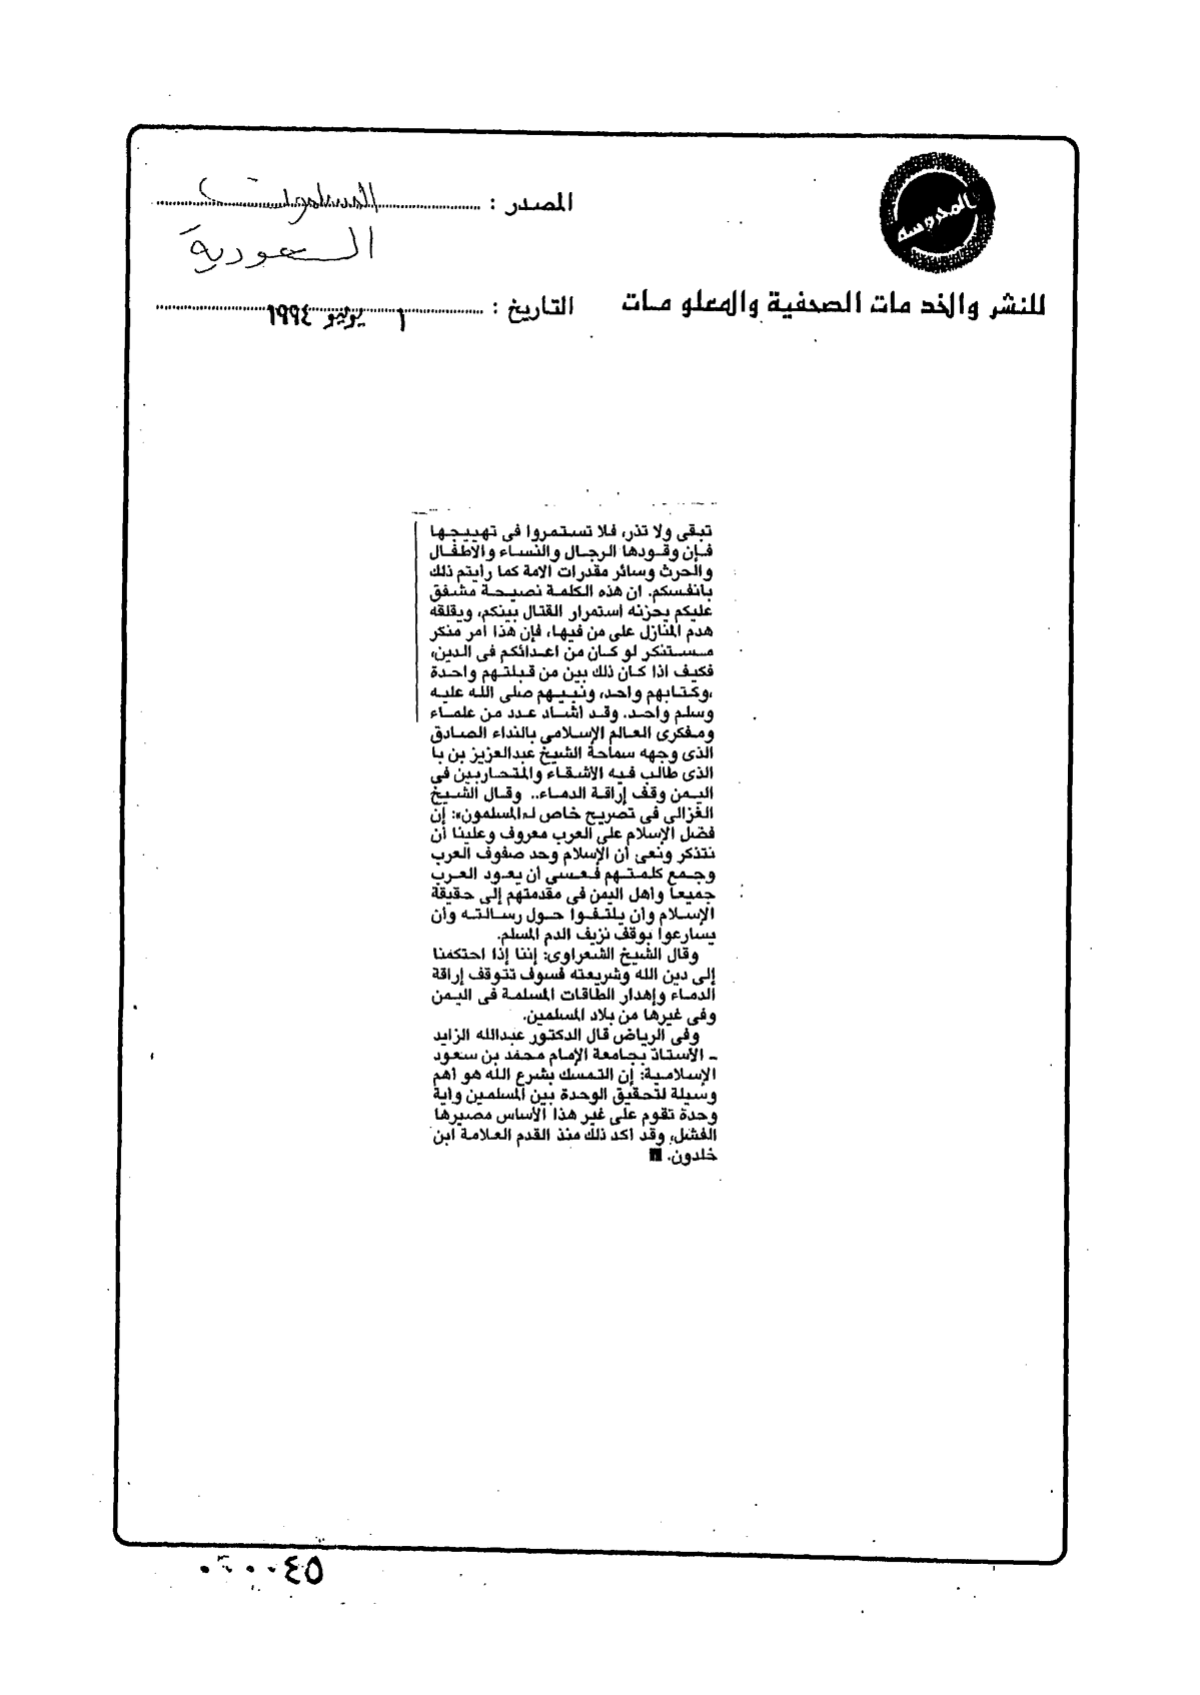 المحروسه
للنشر والخدمات الصحفية والمعلومات
المصدر : المسلمون
السعودية
التاريخ : ١ يوليو ١٩٩٤
تبقى ولا تذر، فلا تستمروا فى تهييجها
فإن وقودها الرجال والنساء والاطفال
والحرث وسائر مقدرات الامة كما رايتم ذلك
بانفسكم. ان هذه الكلمة نصيحة مشفق
عليكم يحزنه استمرار القتال بينكم، ويقلقه
هدم المنازل على من فيها، فإن هذا امر منكر
مستنكر لو كان من اعدائكم فى الدين،
فكيف اذا كان ذلك بين من قبلتهم واحدة
،وكتابهم واحد، ونبيهم صلى الله عليه
وسلم واحد. وقد اشاد عدد من علماء
ومفكرى العالم الإسلامى بالنداء الصادق
الذى وجهه سماحة الشيخ عبدالعزيز بن با
الذى طالب فيه الأشقاء والمتحاربين فى
اليمن وقف إراقة الدماء.. وقال الشيخ
الغزالى فى تصريح خاص لـ«المسلمون»: إن
فضل الإسلام على العرب معروف وعلينا أن
نتذكر ونعى أن الإسلام وحد صفوف العرب
وجمع كلمتهم فعسى أن يعود العرب
جميعا وأهل اليمن فى مقدمتهم إلى حقيقة
الإسلام وأن يلتفوا حول رسالته وأن
يسارعوا بوقف نزيف الدم المسلم.
وقال الشيخ الشعراوى: إننا إذا احتكمنا
إلى دين الله وشريعته فسوف تتوقف إراقة
الدماء وإهدار الطاقات المسلمة فى اليمن
وفى غيرها من بلاد المسلمين.
وفى الرياض قال الدكتور عبدالله الزايد
ـ الأستاذ بجامعة الإمام محمد بن سعود
الإسلامية: إن التمسك بشرع الله هو أهم
وسيلة لتحقيق الوحدة بين المسلمين وأية
وحدة تقوم على غير هذا الأساس مصيرها
الفشل، وقد أكد ذلك منذ القدم العلامة ابن
خلدون.